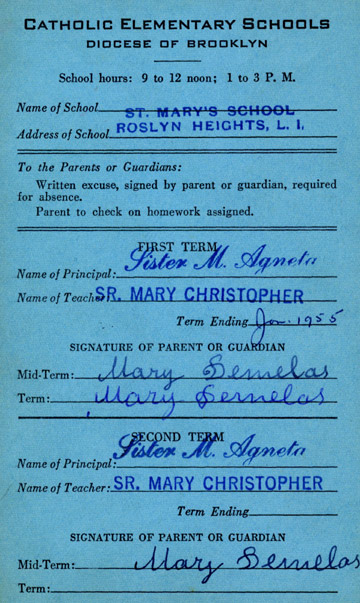 CATHOLIC ELEMENTARY SCHOOLS
DIOCESE OF BROOKLYN
School hours: 9 to 12 noon; 1 to 3 P. M.
Name of School ST. MARY'S SCHOOL
Address of School ROSLYN HEIGHTS, L. I.
To the Parents or Guardians:
Written excuse, signed by parent or guardian, required
for absence.
Parent to check on homework assigned.
FIRST TERM
Name of Principal: Sister M. Agneta
Name of Teacher: SR. MARY CHRISTOPHER
Term Ending Jan. 1955
SIGNATURE OF PARENT OR GUARDIAN
Mid-Term: Mary Semelas
Term: Mary Semelas
SECOND TERM
Name of Principal: Sister M. Agneta
Name of Teacher: SR. MARY CHRISTOPHER
Term Ending
SIGNATURE OF PARENT OR GUARDIAN
Mid-Term: Mary Semelas
Term: